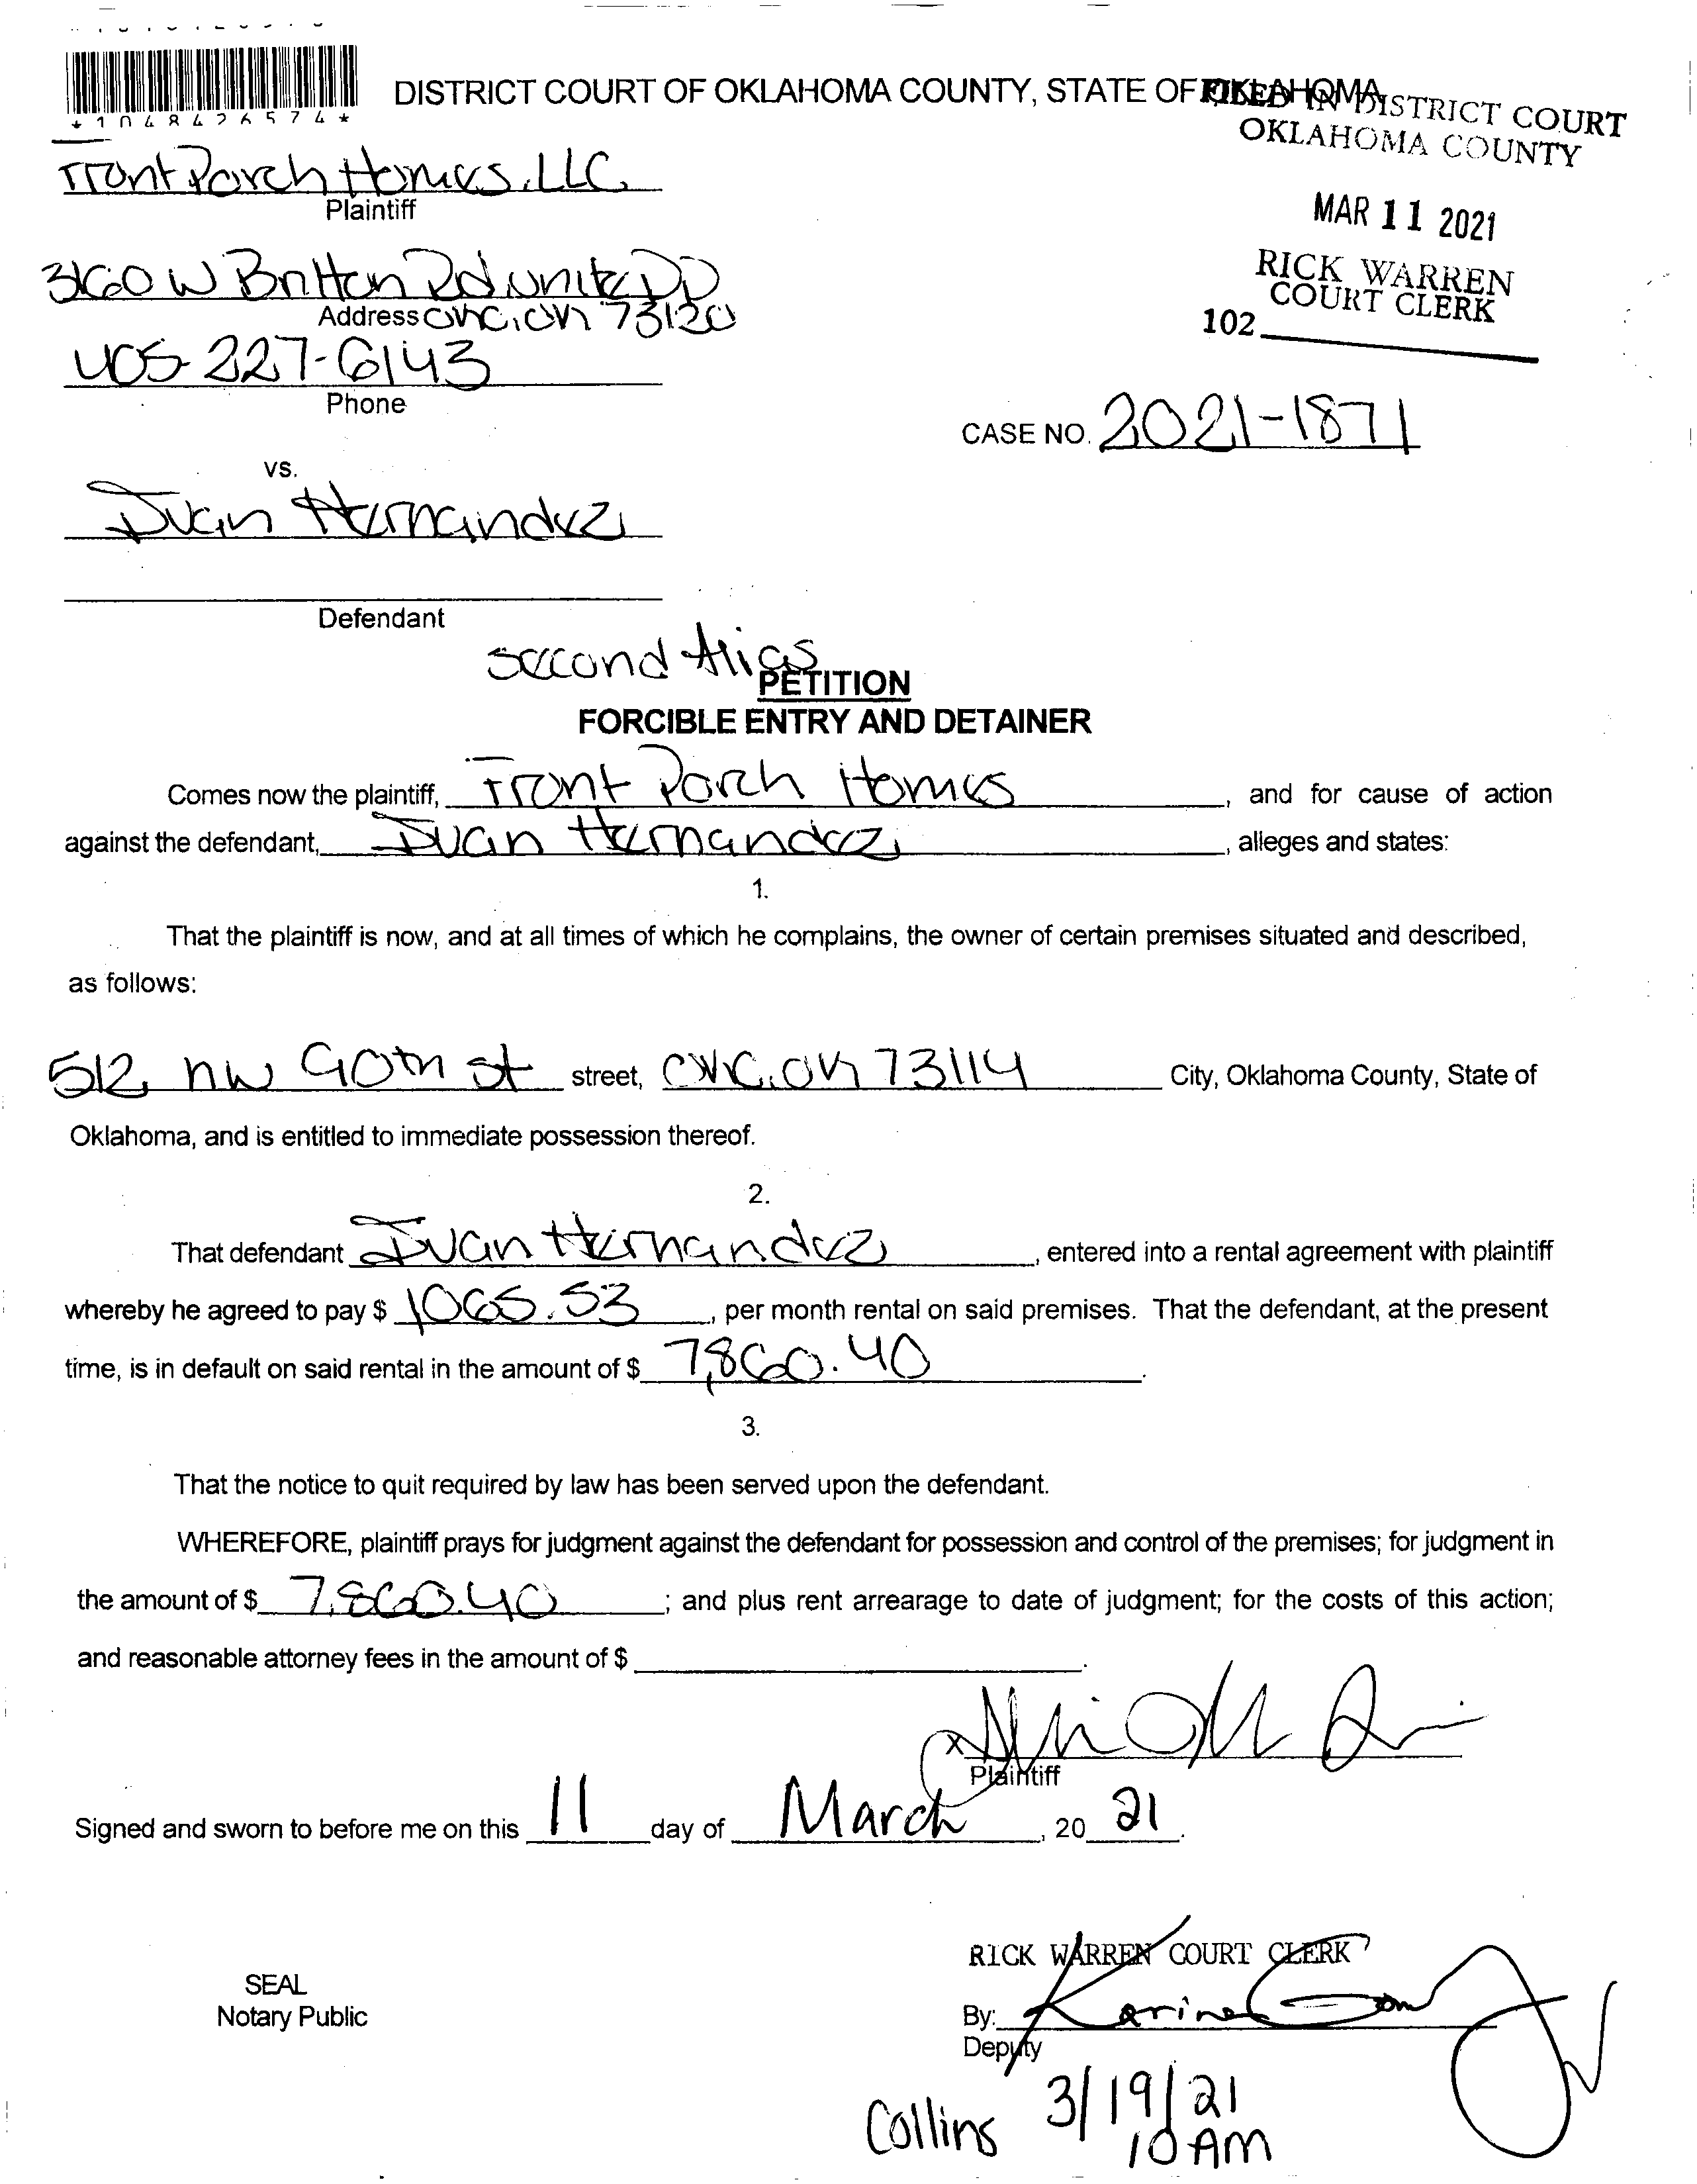 *1048426574*
DISTRICT COURT OF OKLAHOMA COUNTY, STATE OF OKLAHOMA
FILED IN DISTRICT COURT
OKLAHOMA COUNTY
MAR 11 2021
RICK WARREN
COURT CLERK
102
Front Porch Homes, LLC
Plaintiff
3160 W Britton Rd unit DD
Address OKC, OK 73120
405-227-6143
Phone
CASE NO. 2021-1871
vs.
Ivan Hernandez
Defendant
Second Alias
PETITION
FORCIBLE ENTRY AND DETAINER
Comes now the plaintiff, Front Porch Homes, and for cause of action
against the defendant, Ivan Hernandez, alleges and states:
1.
That the plaintiff is now, and at all times of which he complains, the owner of certain premises situated and described,
as follows:
512 NW 90th St street, OKC, OK 73114 City, Oklahoma County, State of
Oklahoma, and is entitled to immediate possession thereof.
2.
That defendant Ivan Hernandez, entered into a rental agreement with plaintiff
whereby he agreed to pay $ 1065.53, per month rental on said premises. That the defendant, at the present
time, is in default on said rental in the amount of $ 7,860.40.
3.
That the notice to quit required by law has been served upon the defendant.
WHEREFORE, plaintiff prays for judgment against the defendant for possession and control of the premises; for judgment in
the amount of $ 7,860.40; and plus rent arrearage to date of judgment; for the costs of this action;
and reasonable attorney fees in the amount of $.
X
Plaintiff
Signed and sworn to before me on this 11 day of March, 20 21.
RICK WARREN COURT CLERK
SEAL
Notary Public
By: Karina
Deputy
Collins 3/19/21
10 AM